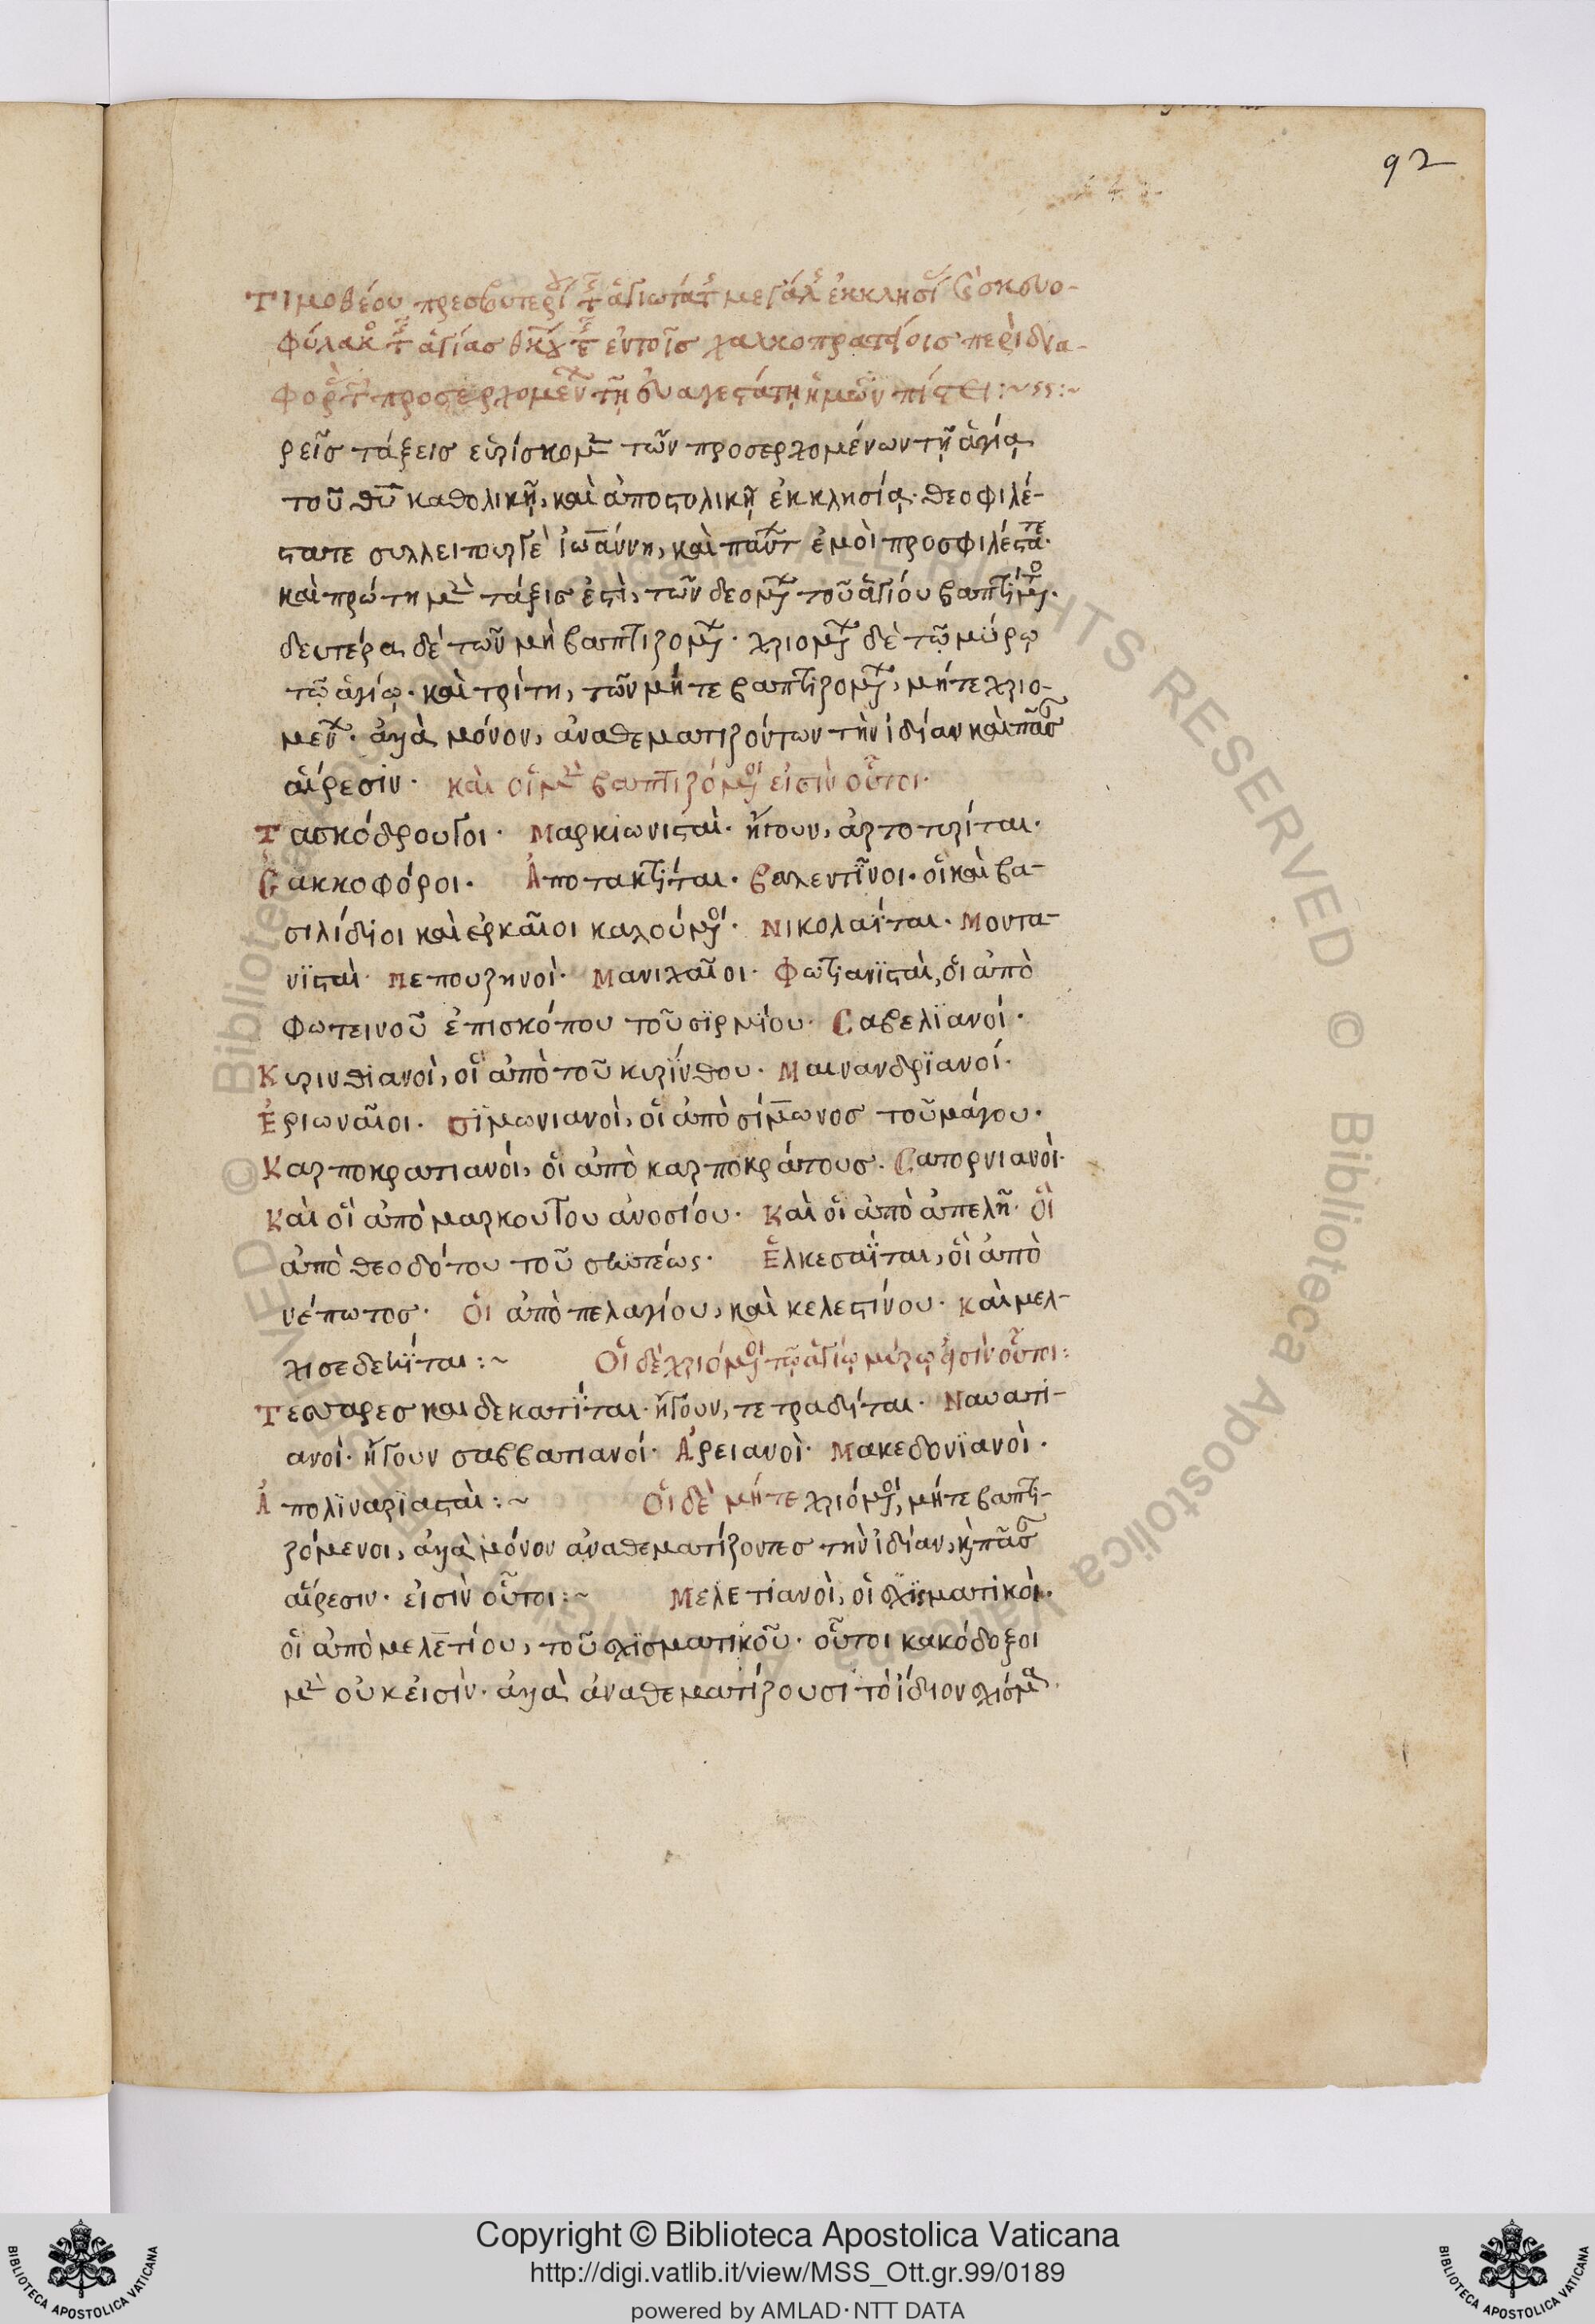 92
Τιμοθέου πρεσβυτέρου τῆς ἁγιωτάτης μεγάλης ἐκκλησίας καὶ σκευο-
φύλακος τῆς ἁγίας θκου τῆς ἐν τοῖς χαλκοπρατίοις περὶ δια-
φορᾶς τῶν προσερχομένων τῇ εὐαγεστάτῃ ἡμῶν πίστει :~
ρεῖς τάξεις εὑρίσκομεν τῶν προσερχομένων τῇ ἁγίᾳ
τοῦ θῦ καθολικῇ, καὶ ἀποστολικῇ ἐκκλησίᾳ· θεοφιλέ-
στατε συλλειτουργὲ ἰωάννη, καὶ πάντων ἐμοὶ προσφιλέστατε·
καὶ πρώτη μὲν τάξις ἐστὶ, τῶν δεομένων τοῦ ἁγίου βαπτίσματος·
δευτέρα δὲ τῶν μὴ βαπτιζομένων· χριομένων δὲ τῷ μύρῳ
τῷ ἁγίῳ· καὶ τρίτη, τῶν μήτε βαπτιζομένων, μήτε χριο-
μένων· ἀλλὰ μόνον, ἀναθεματιζόντων τὴν ἰδίαν καὶ πᾶσαν
αἵρεσιν· καὶ οἱ μὲν βαπτιζόμενοι εἰσὶν οὗτοι·
Τασκόδρουγοι· Μαρκιωνισταὶ· ἤγουν, ἀρτοτυρίται·
Σακκοφόροι· Ἀποτακτίται· βαλεντῖνοι· οἱ καὶ βα-
σιλίδιοι καὶ ἑρκαῖοι καλούμενοι· Νικολαΐται· Μοντα-
νϊσταὶ· Πεπουζηνοὶ· Μανιχαῖοι· Φωτιανϊσταὶ, οἱ ἀπὸ
φωτεινοῦ ἐπισκόπου τοῦ σϊρμϊου· Σαβελϊανοί·
Κιρινθιανοὶ, οἱ ἀπὸ τοῦ κιρίνθου· Μαινανδρϊανοί·
Ἐβιωναῖοι· σϊμωνιανοὶ, οἱ ἀπὸ σίμωνος τοῦ μάγου·
Καρποκρατιανόι, οἱ ἀπὸ καρποκράτους· Σατορνιανόι·
Καὶ οἱ ἀπὸ μαρκου του ἀνοσίου· Καὶ οἱ ἀπὸ ἀπελῆ· Οἱ
ἀπὸ θεοδότου τοῦ σκυτέως· Ἑλκεσαΐται, οἱ ἀπὸ
νέπωτος· Οἱ ἀπὸ πελαγίου, καὶ κελεστίνου· καὶ μελ-
χισεδεκΐται :~ Οἱ δὲ χριόμενοι τῷ ἁγίῳ μύρῳ εἰσὶν οὗτοι:
Τεσσαρεσκαιδεκατΐται· ἤγουν, τετραδίται· Ναυατι-
ανοί· ἤγουν σαββατιανοί· Ἀρειανοὶ· Μακεδονϊανοὶ·
Ἀπολϊναρϊασταὶ :~ Οἱ δὲ μήτε χριόμενοι, μήτε βαπτι-
ζόμενοι, ἀλλὰ μόνον ἀναθεματίζοντες τὴν ἰδίαν, καὶ πᾶσαν
αἵρεσιν· εἰσὶν οὗτοι :~ Μελετιανοὶ, οἱ σχϊσματικὸι·
οἱ ἀπὸ μελετίου, τοῦ σχϊσματικοῦ· οὗτοι κακόδοξοι
μὲν οὐκ εἰσὶν· ἀλλὰ ἀναθεματίζουσι τὸ ἴδιον σχίσμα·
Copyright © Biblioteca Apostolica Vaticana
http://digi.vatlib.it/view/MSS_Ott.gr.99/0189
powered by AMLAD·NTT DATA
BIBLIOTECA APOSTOLICA VATICANA
BIBLIOTECA APOSTOLICA VATICANA
© Biblioteca Apostolica Vaticana ALL RIGHTS RESERVED
© Biblioteca Apostolica Vaticana ALL RIGHTS RESERVED